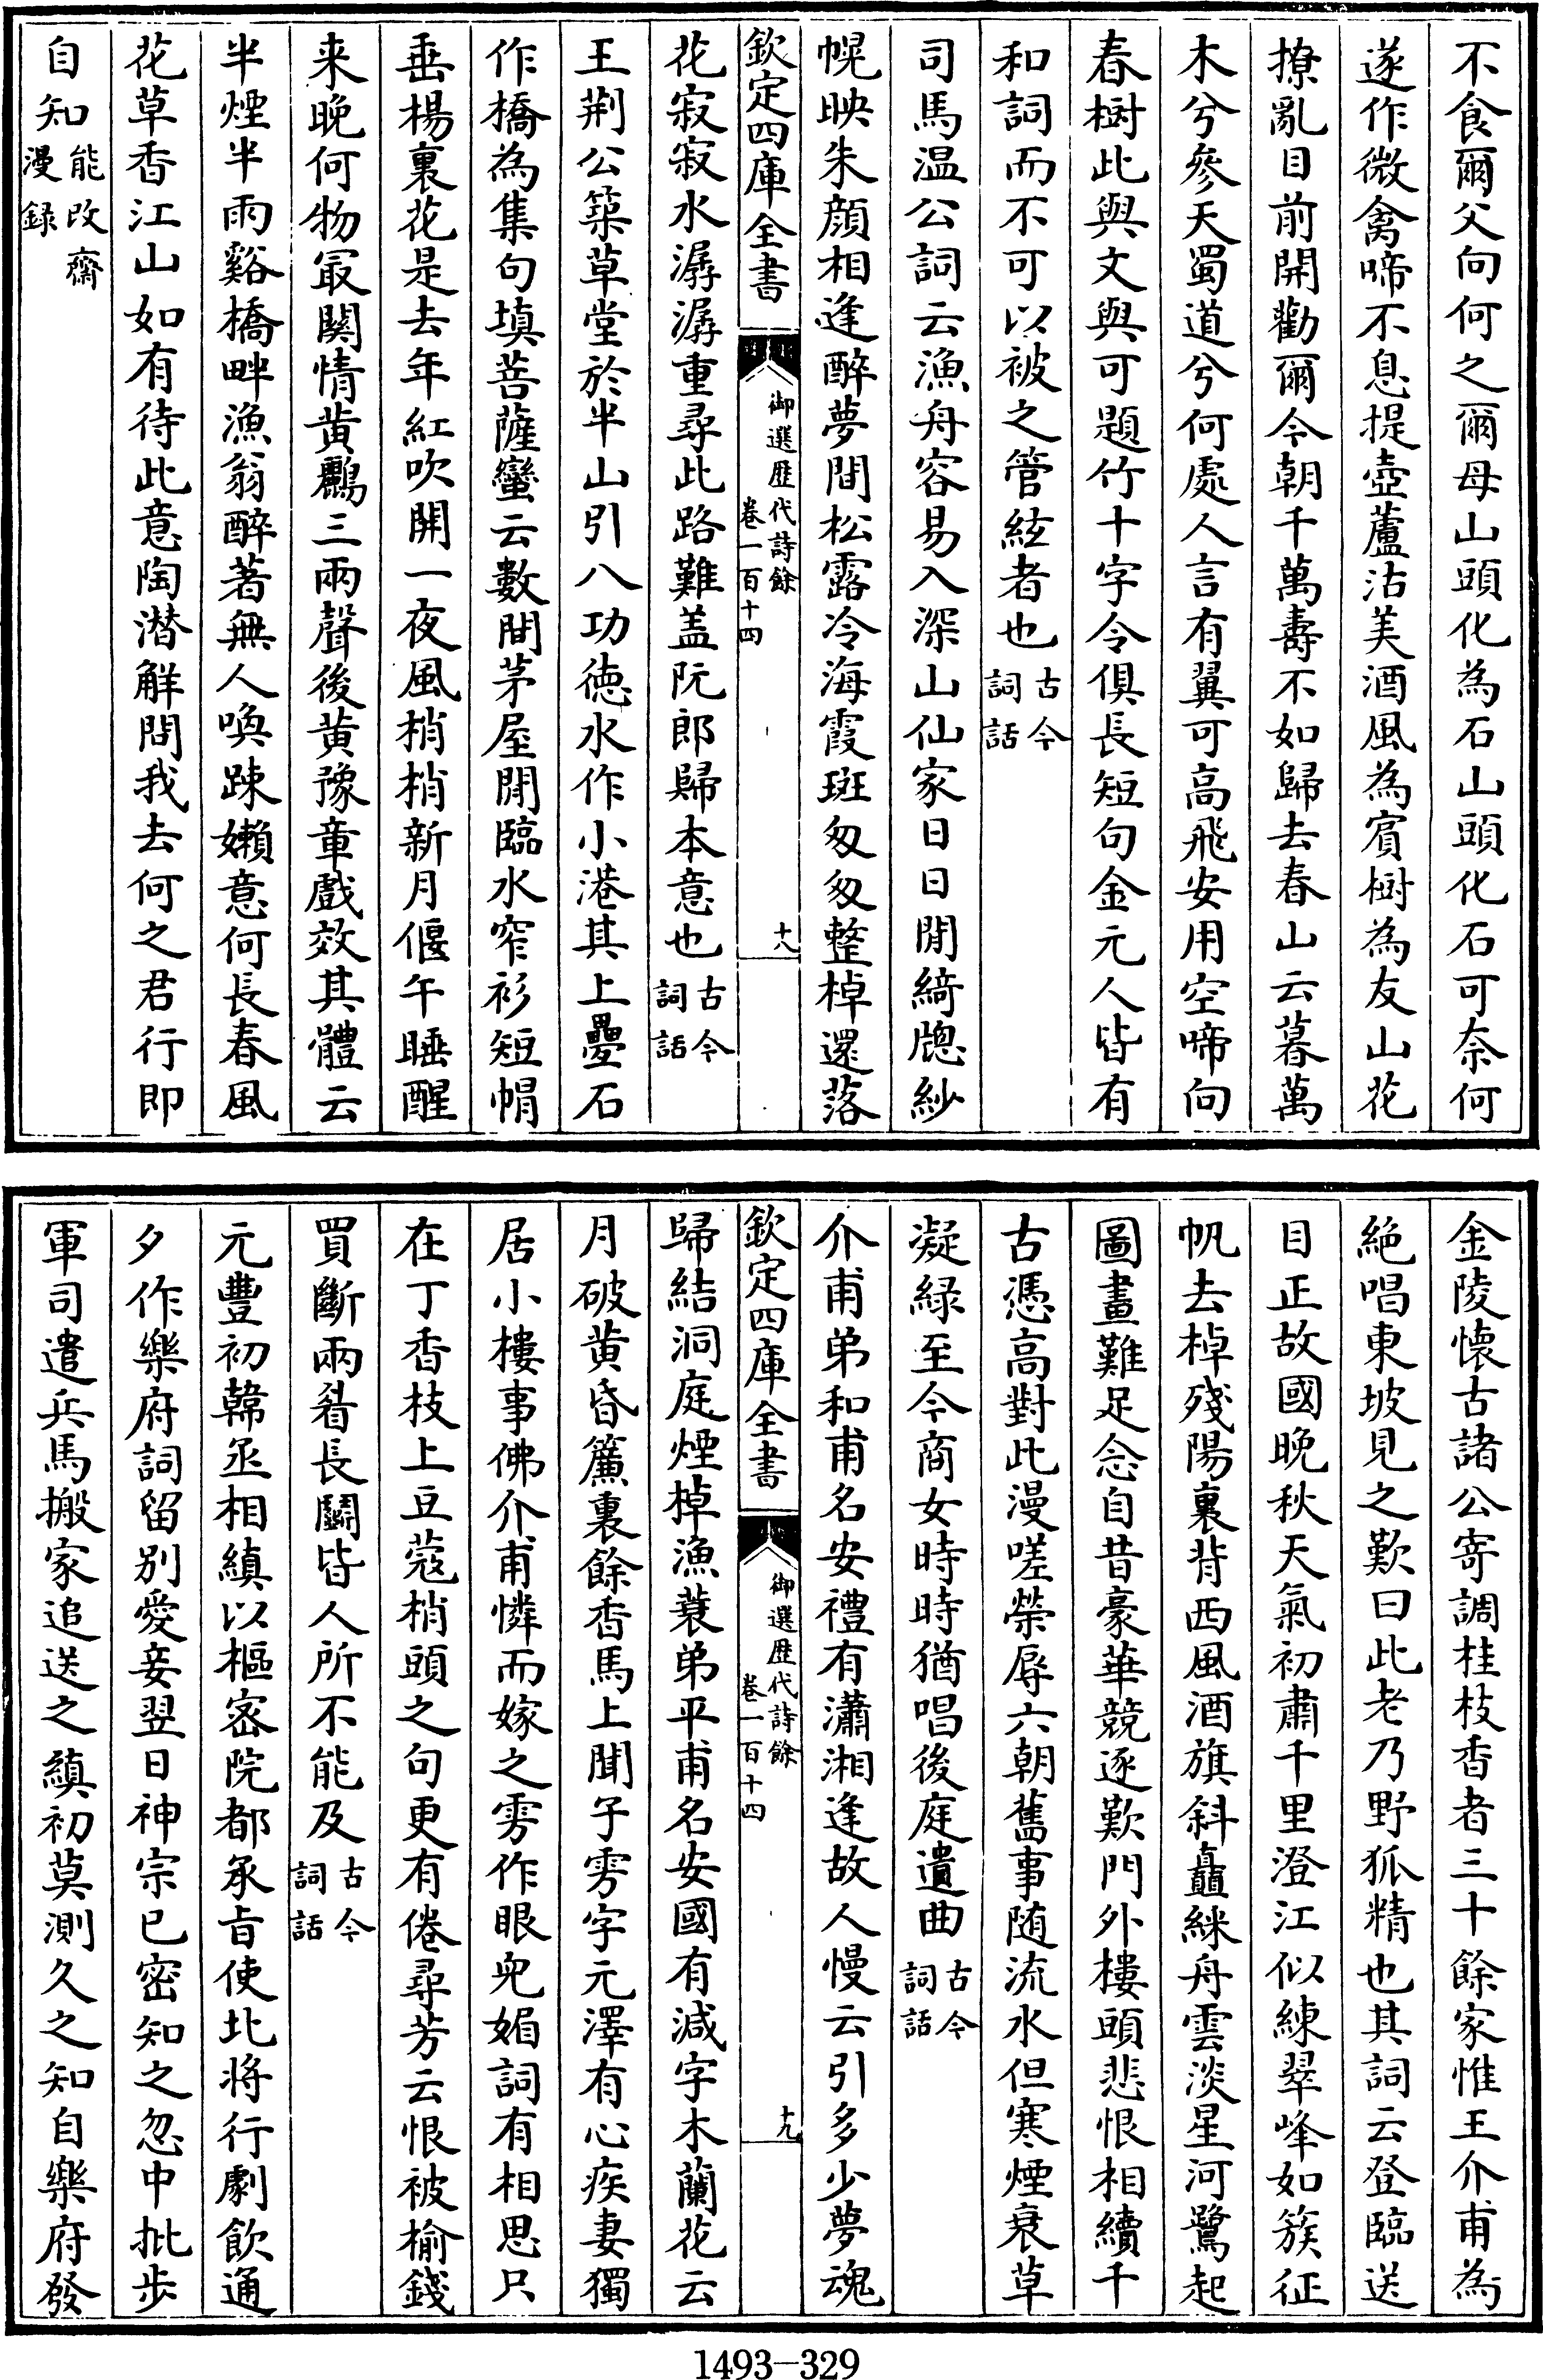 不食爾父向何之爾母山頭化為石山頭化石可奈何
遂作微禽啼不息提壺蘆沽美酒風為賓樹為友山花
撩亂目前開勸爾今朝千萬壽不如歸去春山云暮萬
木兮參天蜀道兮何處人言有翼可高飛安用空啼向
春樹此與文與可題竹十字令俱長短句金元人皆有
和詞而不可以被之管絃者也古今詞話
司馬温公詞云漁舟容易入深山仙家日日閒綺牕紗
幌映朱顔相逢醉夢間松露冷海霞斑匆匆整棹還落
欽定四庫全書 御選歴代詩餘 卷一百十四 十八
花寂寂水潺潺重尋此路難盖阮郎歸本意也古今詞話
王荆公築草堂於半山引八功徳水作小港其上疊石
作橋為集句填菩薩蠻云數間茅屋閒臨水窄衫短帽
垂楊裏花是去年紅吹開一夜風梢梢新月偃午睡醒
来晩何物冣闗情黄鸝三兩聲後黄豫章戲效其體云
半煙半雨谿橋畔漁翁醉著無人喚踈嬾意何長春風
花草香江山如有待此意陶潜解問我去何之君行即
自知能改齋漫録
金陵懐古諸公寄調桂枝香者三十餘家惟王介甫為
絶唱東坡見之歎曰此老乃野狐精也其詞云登臨送
目正故國晩秋天氣初肅千里澄江似練翠峰如簇征
帆去棹殘陽裏背西風酒旗斜矗綵舟雲淡星河鷺起
圖畫難足念自昔豪華競逐歎門外樓頭悲恨相續千
古憑高對此漫嗟榮辱六朝舊事随流水但寒煙衰草
凝緑至今商女時時猶唱後庭遺曲古今詞話
介甫弟和甫名安禮有瀟湘逢故人慢云引多少夢魂
欽定四庫全書 御選歴代詩餘 卷一百十四 十九
歸結洞庭煙棹漁蓑弟平甫名安國有減字木蘭花云
月破黄昏簾裏餘香馬上聞子雱字元澤有心疾妻獨
居小樓事佛介甫憐而嫁之雱作眼兒媚詞有相思只
在丁香枝上豆蔻梢頭之句更有倦尋芳云恨被榆錢
買斷兩眉長鬭皆人所不能及古今詞話
元豐初韓丞相縝以樞宻院都承㫖使北將行劇飲通
夕作樂府詞留别愛妾翌日神宗已密知之忽中批步
軍司遣兵馬搬家追送之縝初莫測久之知自樂府發
1493—329